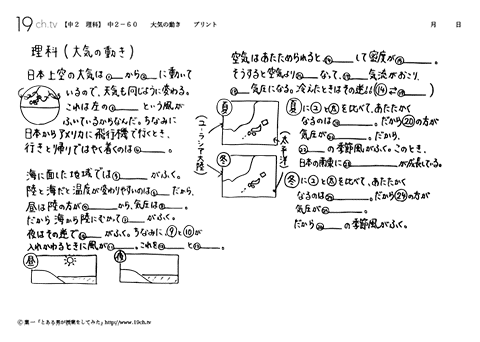 19ch.tv 【中2 理科】 中2-60 大気の動き プリント 月 日
理科(大気の動き)
日本上空の大気は①から②に動いて
いるので、天気も同じように変わる。
これは左の③という風が
ふいているからなんだ。ちなみに
日本からアメリカに飛行機で行くとき、
行きと帰りではやく着くのは④。
海に面した地域では⑤がふく。
陸と海だと温度が変わりやすいのは⑥だから、
昼は陸の方が⑦から、気圧は⑧。
だから海から陸にむかって⑨がふく。
夜はその逆で⑩がふく。ちなみに、⑨と⑩が
入れかわるときに風が⑪。これを⑫と⑬。
昼
夜
空気はあたためられると⑭して密度が⑮。
そうすると空気より⑯なって、⑰気流がおこり、
⑱気圧になる。冷えたときはその逆だ(⑭⇄⑲)
夏
冬
(ユーラシア大陸)
(太平洋)
夏に②と⑤を比べて、あたたかく
なるのは⑳。だから⑳の方が
気圧が。
の季節風がふく。このとき、
日本の南東にが成長している。
冬に②と⑤を比べて、あたたかく
なるのは。だから㉔の方が
気圧が。
だからの季節風がふく。
© 葉一「とある男が授業をしてみた」http://www.19ch.tv